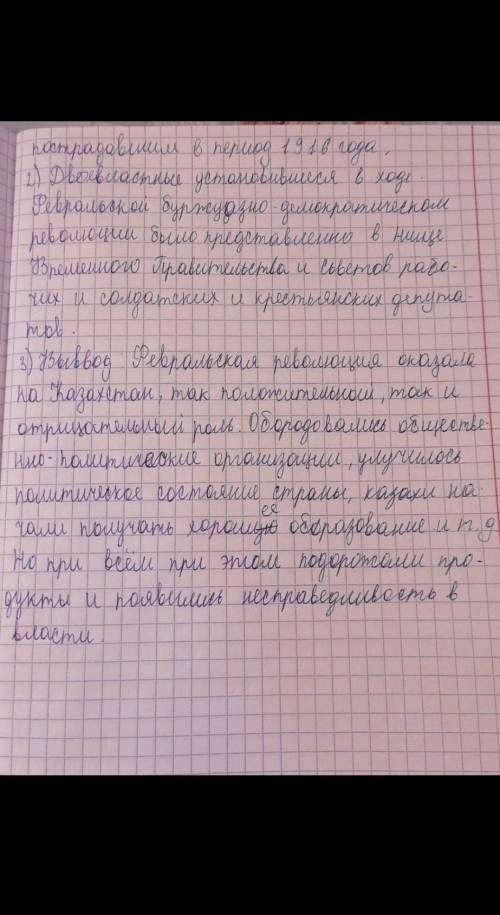 пострадавшим в период 1916 года,
2) Двоевластные установившиеся в ходе
Февральской буржуозно-демократическом
революции было представленно в лице
Временного Правительства и советов рабо-
чих и солдатских и крестьянских депута-
тов.
3) Выввод Февральская революция оказала
на Казахстан, так положительной, так и
отрицательный роль. Обородовались обществе-
нно-политические организации, улучилось
политическое состояние страны, казахи на-
чали получать хорошее образование и т.д
Но при всём при этом подорожали про-
дукты и появились несправедливость в
власти.